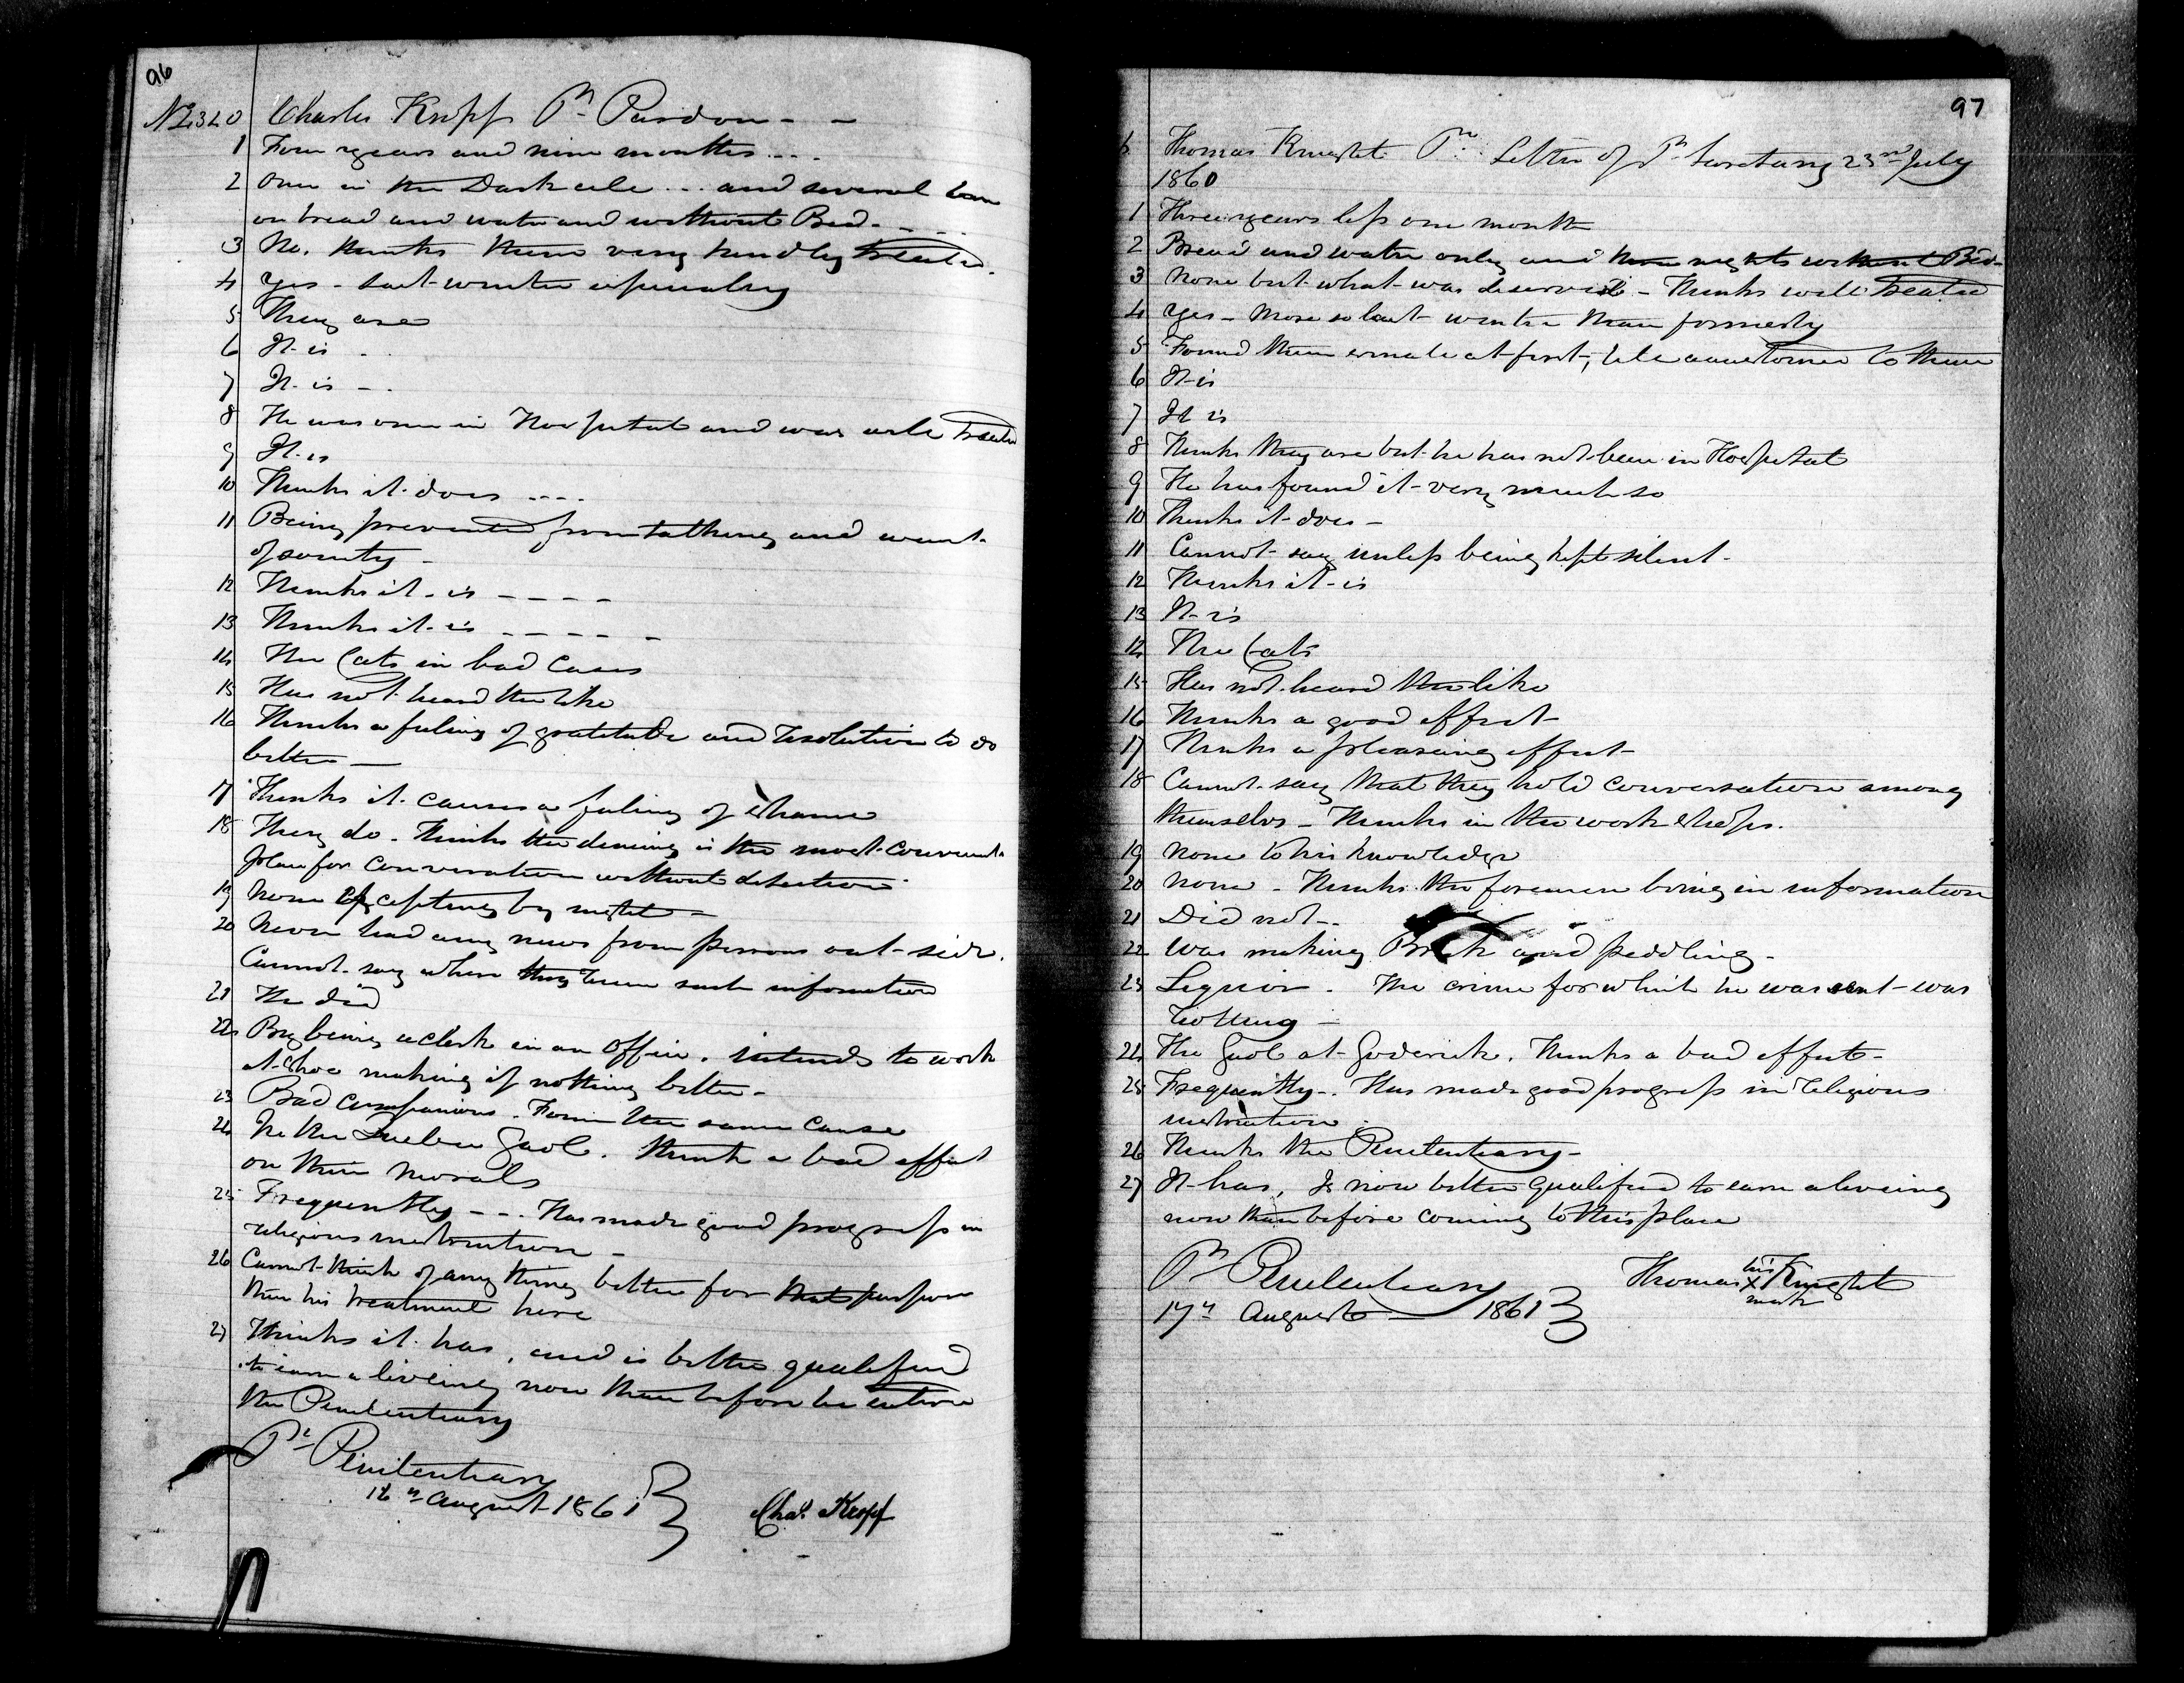 96
No 320 Charles Kropf Pr Pardon - -
1 Four years and nine months ....
2 Once in the Dark cele ... and several times
on bread and water and without Bed - - - -
3 No. thinks them very kindly treated.
4 Yes - last winter especialy
5 They are
6 It is - .
7 It is - .
8 He was once in Hospital and was well treated
9 It is
10 Thinks it does ....
11 Being prevented from talking and want
of society -
12 Thinks it is - - - -
13 Thinks it is - - - - -
14 The Cats in bad Cases
15 Has not heard the like
16 Thinks a feeling of gratitude and resolution to do
better -
17 Thinks it causes a feeling of shame
18 They do - thinks the dineing is the most convenient
place for conversation without detection
19 None excepting by night -
20 Never had any news from persons out-side.
Cannot say where they learn such information
21 He did
22 By being a clerk in an office. intends to work
at shoe making if nothing better -
23 Bad companions - From the same cause
24 In the Quebec Gaol. think a bad effect
on their Morals
25 Frequently - - . Has made good progress in
religious instruction -
26 Cannot think of any thing better for that purpose
than his treatment here
27 Thinks it has, and is better qualified
to earn a liveing now than before he entered
the Penitentiary
Pl Penitentiary
16th August 1861
Chas. Kropf
97
Thomas Knight Pr. Letter of Pl Secretary 23rd July
1860
1 Three years less one month
2 Bread and water only and three nights without Bed -
3 None but what was deserved - Thinks well treated
4 Yes - More so last winter than formerly
5 Found them ermale at first, till accustomed to them
6 It is
7 It is
8 Thinks they are but he has not been in Hospital
9 He has found it very much so
10 Thinks it does -
11 Cannot say unless being kept silent -
12 Thinks it is
13 It is
14 The Cats
15 Has not heard the like
16 Thinks a good effect
17 Thinks a pleasing effect
18 Cannot say that they hold conversation among
themselvs - Thinks in the work shops.
19 None to his knowledge
20 None - Thinks the foremen bring in information
21 Did not -
22 Was making Brick and peddling -
23 Liquor. The crime for which he was sent was
24 The Gaol at Goderich. Thinks a bad effect -
25 Frequently - . Has made good progress in religious
instruction -
26 Thinks the Penitentiary -
27 It has, Is now better qualified to earn a liveing
now than before coming to this place
Pl Penitentiary
17th August - 1861
Thomas his X mark Knight